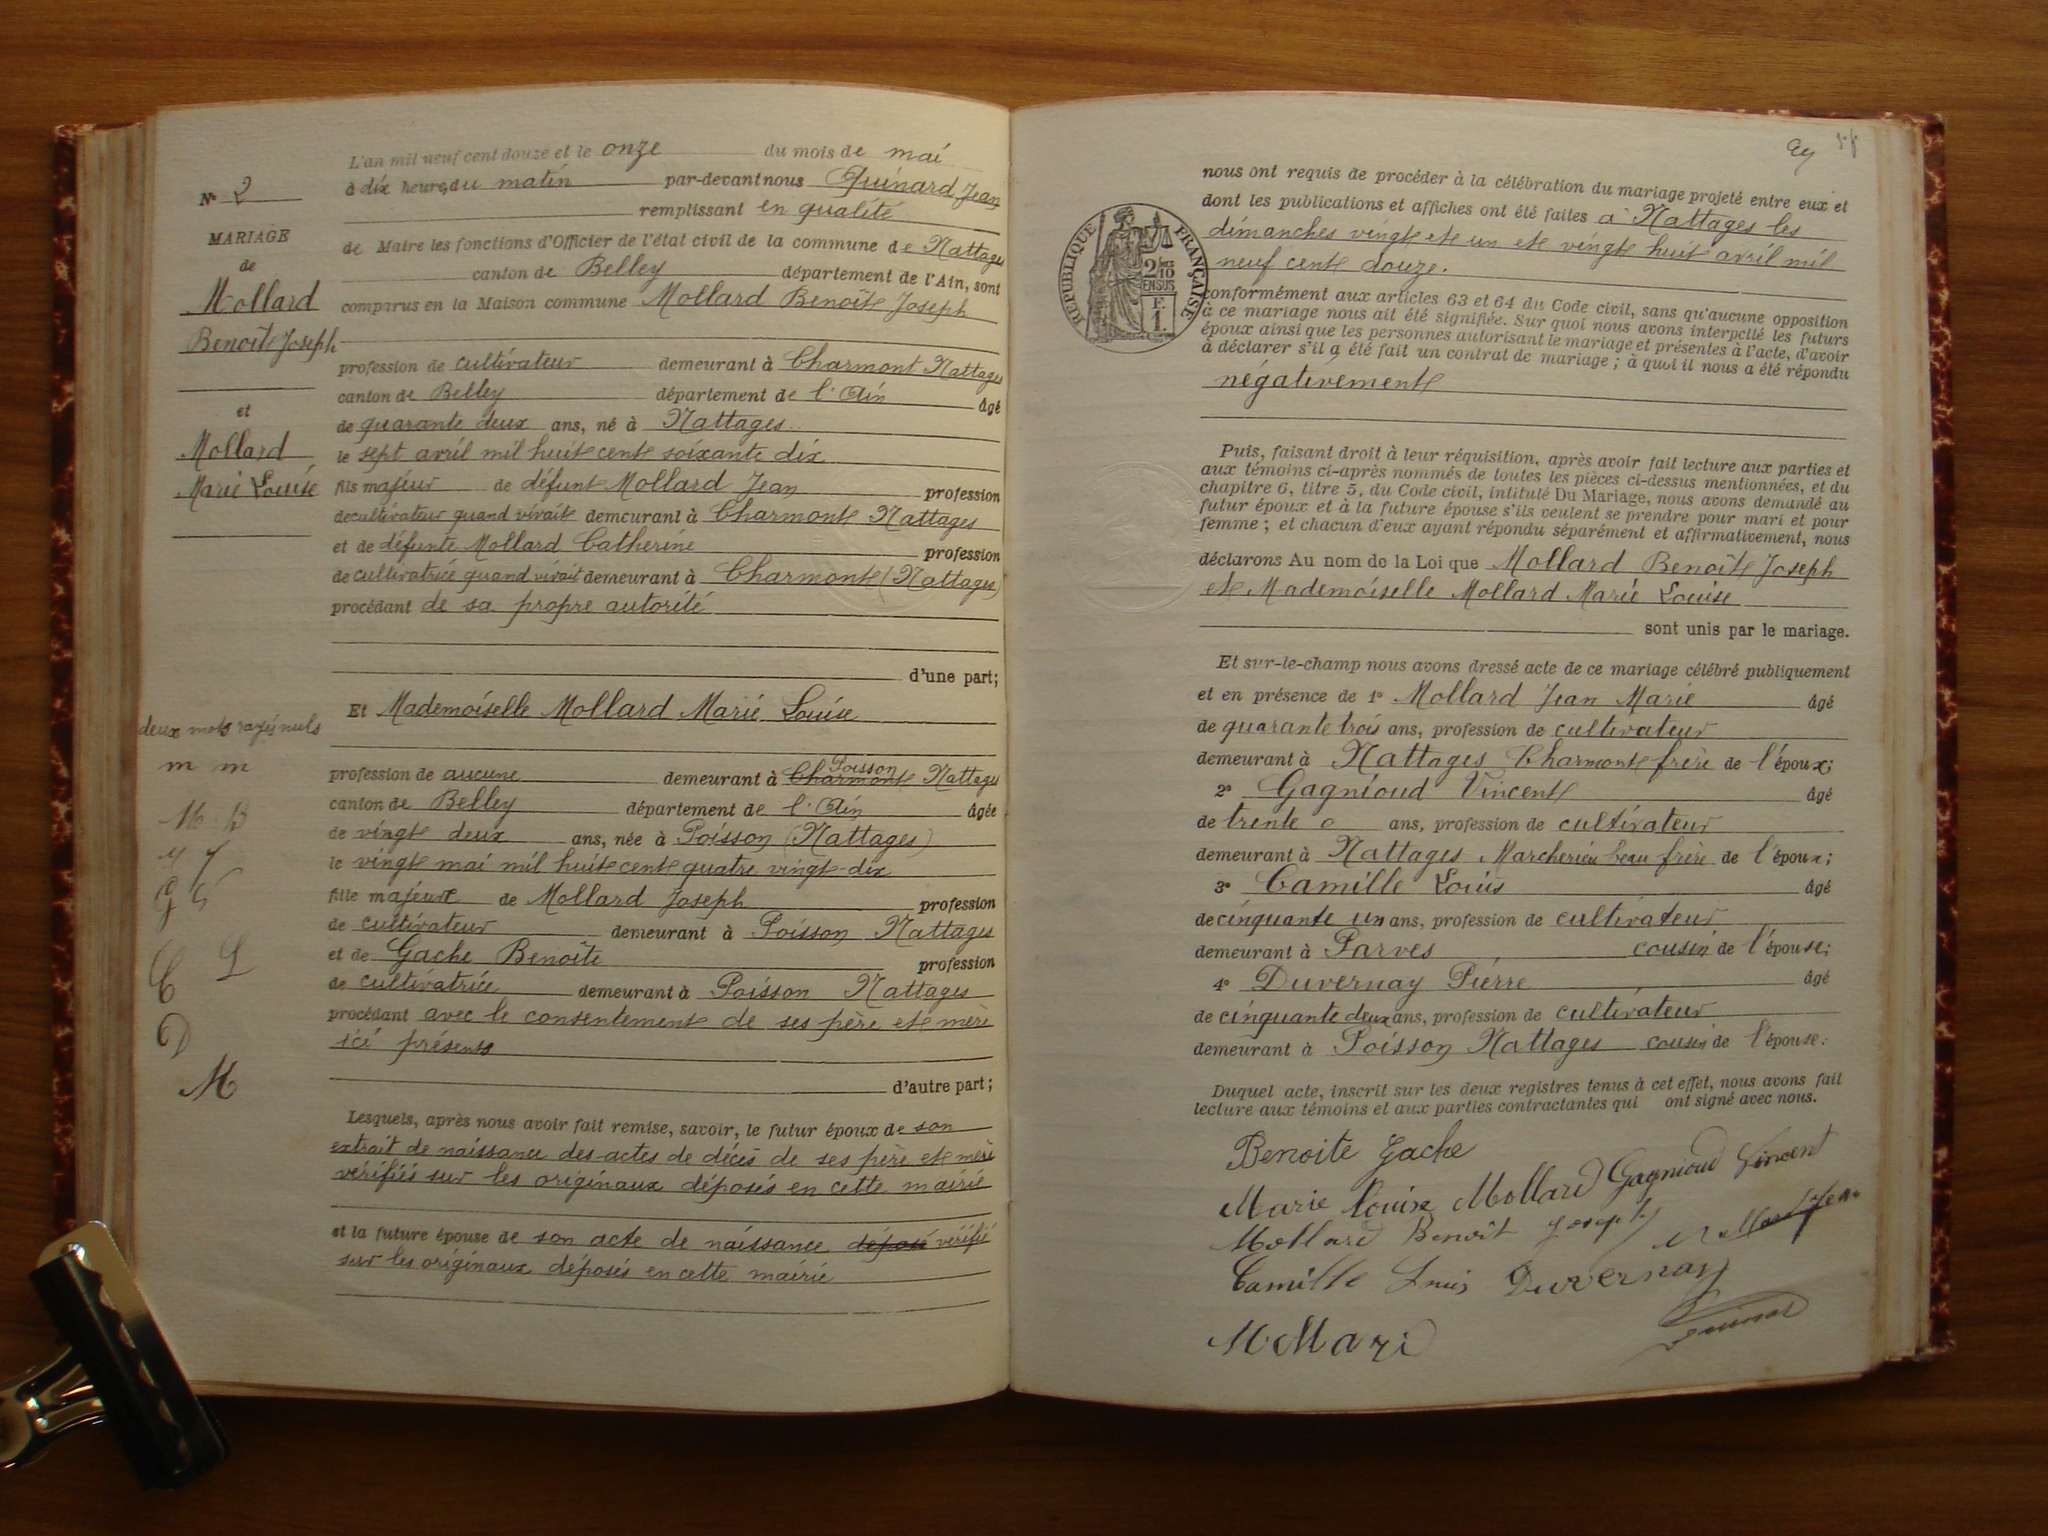 L'an mil neuf cent douze et le onze du mois de mai
à dix heures du matin par-devant nous Quinard Jean
remplissant en qualité
de Maire les fonctions d'Officier de l'état civil de la commune de Nattages
canton de Belley département de l'Ain, sont
comparus en la Maison commune Mollard Benoît Joseph
profession de cultivateur demeurant à Charmont Nattages
canton de Belley département de l'Ain âgé
de quarante deux ans, né à Nattages
le sept avril mil huit cent soixante dix
fils majeur de défunt Mollard Jean profession
de cultivateur quand vivait demeurant à Charmont Nattages
et de défunte Mollard Catherine profession
de cultivatrice quand vivait demeurant à Charmont (Nattages)
procédant de sa propre autorité
d'une part;
Et Mademoiselle Mollard Marie Louise
Poisson
profession de aucune demeurant à Charmont Nattages
canton de Belley département de l'Ain âgée
de vingt deux ans, née à Poisson (Nattages)
le vingt mai mil huit cent quatre vingt-dix
fille majeure de Mollard Joseph profession
de cultivateur demeurant à Poisson Nattages
et de Gache Benoîte profession
de cultivatrice demeurant à Poisson Nattages
procédant avec le consentement de ses père et mère
ici présents
d'autre part;
Lesquels, après nous avoir fait remise, savoir, le futur époux de son
extrait de naissance des actes de décès de ses père et mère
vérifiés sur les originaux déposés en cette mairie
et la future épouse de son acte de naissance déposé vérifié
sur les originaux déposés en cette mairie
N° 2
MARIAGE
de
Mollard
Benoît Joseph
et
Mollard
Marie Louise
deux mots rayés nuls
m m
M
C L
D
M
nous ont requis de procéder à la célébration du mariage projeté entre eux et
dont les publications et affiches ont été faites à Nattages les
dimanches vingt et un et vingt huit avril mil
neuf cent douze.
RÉPUBLIQUE FRANÇAISE
2/10
EN SUS
F.
1.
conformément aux articles 63 et 64 du Code civil, sans qu'aucune opposition
à ce mariage nous ait été signifiée. Sur quoi nous avons interpellé les futurs
époux ainsi que les personnes autorisant le mariage et présentes à l'acte, d'avoir
à déclarer s'il a été fait un contrat de mariage; à quoi il nous a été répondu
négativement
Puis, faisant droit à leur réquisition, après avoir fait lecture aux parties et
aux témoins ci-après nommés de toutes les pièces ci-dessus mentionnées, et du
chapitre 6, titre 5, du Code civil, intitulé Du Mariage, nous avons demandé au
futur époux et à la future épouse s'ils veulent se prendre pour mari et pour
femme; et chacun d'eux ayant répondu séparément et affirmativement, nous
déclarons Au nom de la Loi que Mollard Benoît Joseph
et Mademoiselle Mollard Marie Louise
sont unis par le mariage.
Et sur-le-champ nous avons dressé acte de ce mariage célébré publiquement
et en présence de 1° Mollard Jean Marie âgé
de quarante trois ans, profession de cultivateur
demeurant à Nattages Charmont frère de l'époux;
2° Gagnioud Vincent âgé
de trente ans, profession de cultivateur
demeurant à Nattages Marcherieu beau frère de l'époux;
3° Camille Louis âgé
de cinquante un ans, profession de cultivateur
demeurant à Parves cousin de l'épouse;
4° Duvernay Pierre âgé
de cinquante deux ans, profession de cultivateur
demeurant à Poisson Nattages cousin de l'épouse.
Duquel acte, inscrit sur les deux registres tenus à cet effet, nous avons fait
lecture aux témoins et aux parties contractantes qui ont signé avec nous.
Benoite Gache
Marie Louise Mollard Gagnioud Vincent
Mollard Benoît Joseph
Camille Louis Duvernay